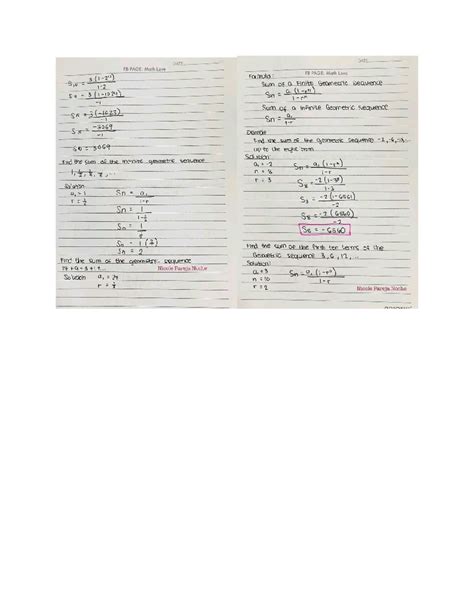 DATE:
FB PAGE: Math Love
Sn = 3(1-2¹⁰)
1-2
Sn = 3(1-1024)
-1
Sn = 3(-1023)
-1
Sn = -3069
-1
Sn = 3069
Find the sum of the infinite geometric sequence
Solution
a₁ = 1
r = ½
Sn = a₁
1-r
Sn = 1
1-½
Sn = 1
½
Sn = 2
Find the sum of the geometric sequence
Solution
Nicole Pareja Noche
DATE:
FB PAGE: Math Love
Formula:
Sum of a Finite Geometric sequence
Sn = a₁(1-rⁿ)
1-r
Sum of a Infinite Geometric sequence
Sn = a₁
1-r
Find the sum of the geometric sequence -2, -6, -18...
up to the eight term
Solution:
a₁ = -2
n = 8
r = 3
Sn = a₁(1-rⁿ)
1-r
S₈ = -2(1-3⁸)
1-3
S₈ = -2(1-6561)
-2
S₈ = -2(-6560)
-2
S₈ = -6560
Find the sum of the first ten terms of the
Geometric sequence 3, 6, 12, ...
Solution:
a = 3
n = 10
r = 2
Sn = a₁(1-rⁿ)
1-r
Nicole Pareja Noche